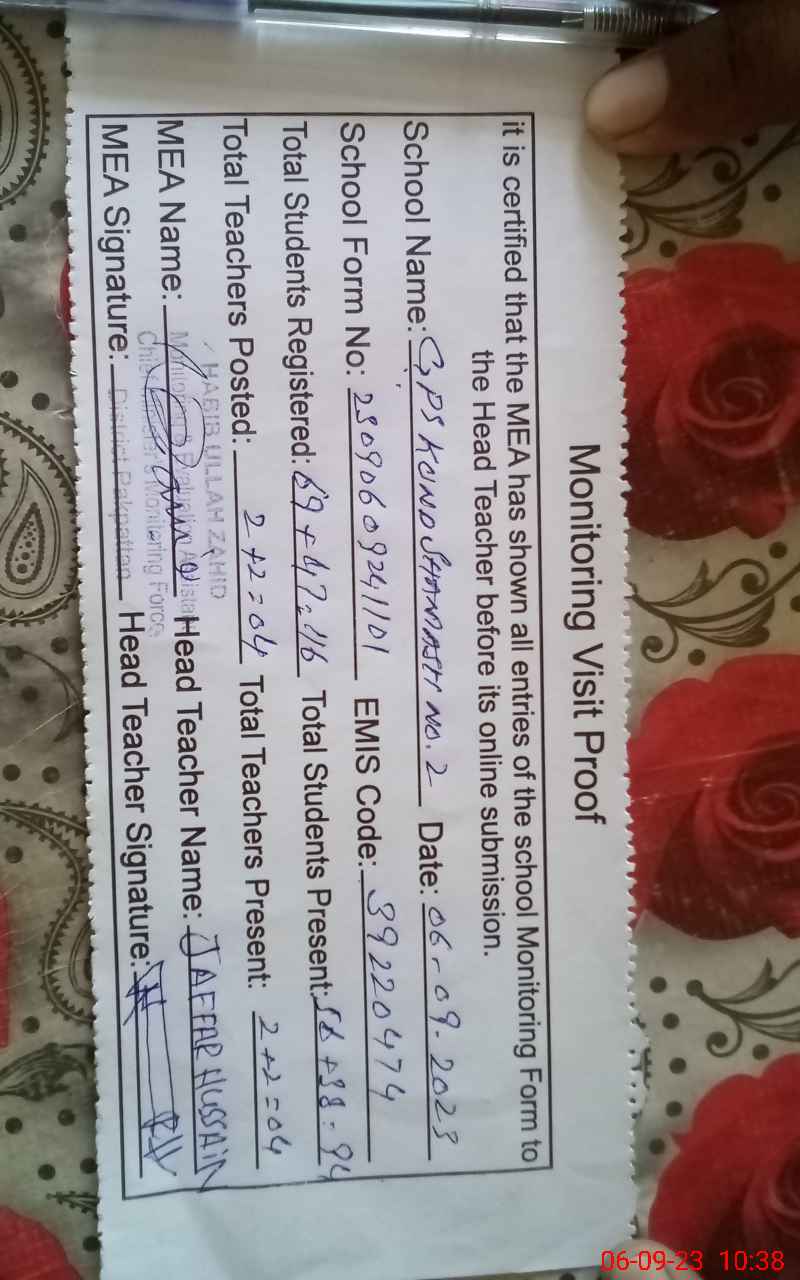 Monitoring Visit Proof
it is certified that the MEA has shown all entries of the school Monitoring Form to
the Head Teacher before its online submission.
School Name: GPS KUND SHAMASH NO. 2 Date: 06-09-2023
School Form No: 23090609241101 EMIS Code: 39220474
Total Students Registered: 69+47=116 Total Students Present: 56+38=94
Total Teachers Posted: 2+2=04 Total Teachers Present: 2+2=04
HABIB ULLAH ZAHID
MEA Name: Head Teacher Name: JAFFAR HUSSAIN
Monitoring & Evaluation Assistant
Chief Minister's Monitoring Force
MEA Signature: District Pakpattan Head Teacher Signature:
06-09-23 10:38